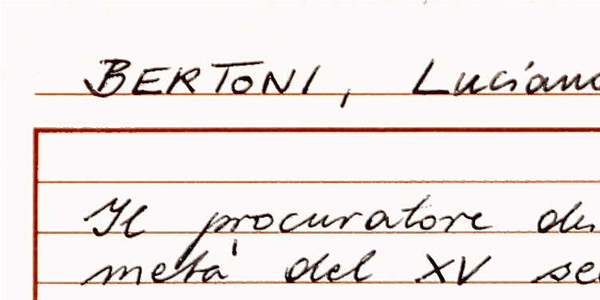 BERTONI, Luciano
Il procuratore
metà del XV